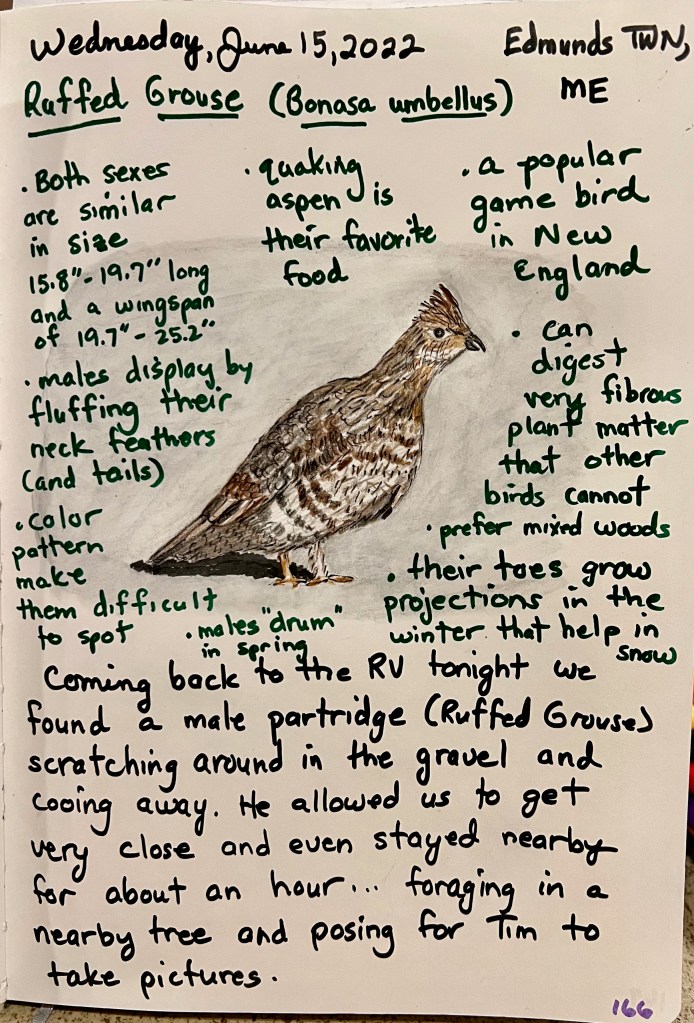 Wednesday, June 15, 2022
Edmunds TWN,
ME
Ruffed Grouse (Bonasa umbellus)
• Both sexes
are similar
in size
15.8"-19.7" long
and a wingspan
of 19.7"-25.2"
• males display by
fluffing their
neck feathers
(and tails)
• color
pattern
make
them difficult
to spot
• quaking
aspen is
their favorite
food
• a popular
game bird
in New
England
• can
digest
very fibrous
plant matter
that other
birds cannot
• prefer mixed woods
• their toes grow
projections in the
winter that help in
snow
• males "drum"
in spring
Coming back to the RV tonight we
found a male partridge (Ruffed Grouse)
scratching around in the gravel and
cooing away. He allowed us to get
very close and even stayed nearby
for about an hour... foraging in a
nearby tree and posing for Tim to
take pictures.
166